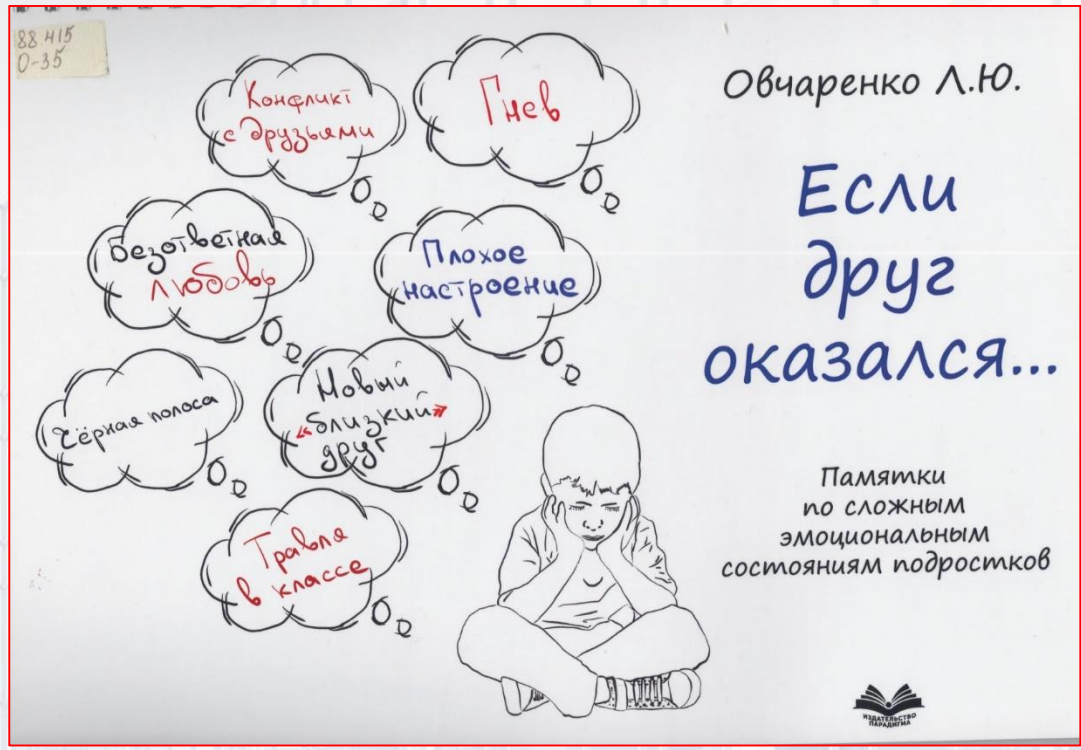 88.415
О-35
Конфликт
с друзьями
Гнев
Безответная
любовь
Плохое
настроение
Чёрная полоса
Новый
«близкий»
друг
Травля
в классе
Овчаренко Л.Ю.
Если
друг
оказался...
Памятки
по сложным
эмоциональным
состояниям подростков
ИЗДАТЕЛЬСТВО
ПАРАДИГМА